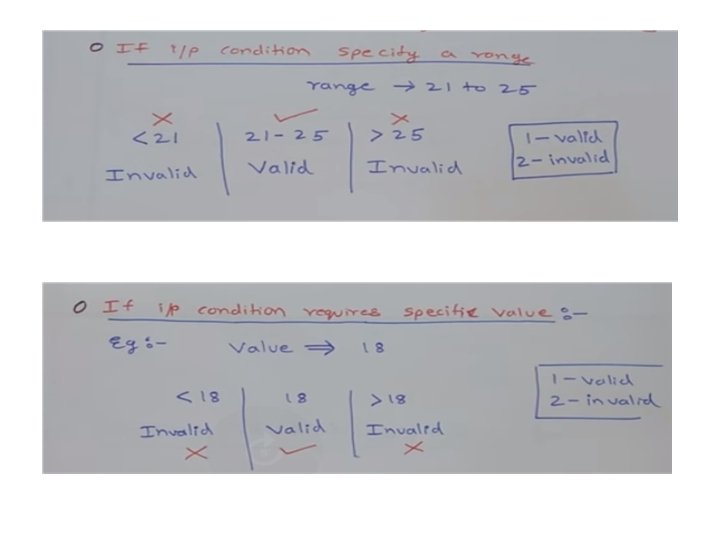 O If i/p condition specify a range
range → 21 to 25
✗ ✓ ✗
<21 | 21-25 | >25
Invalid | Valid | Invalid
1-valid
2-invalid
O If i/p condition requires specific value :-
Eg :- Value ⇒ 18
<18 | 18 | >18
Invalid | Valid | Invalid
✗ ✓ ✗
1-valid
2-invalid